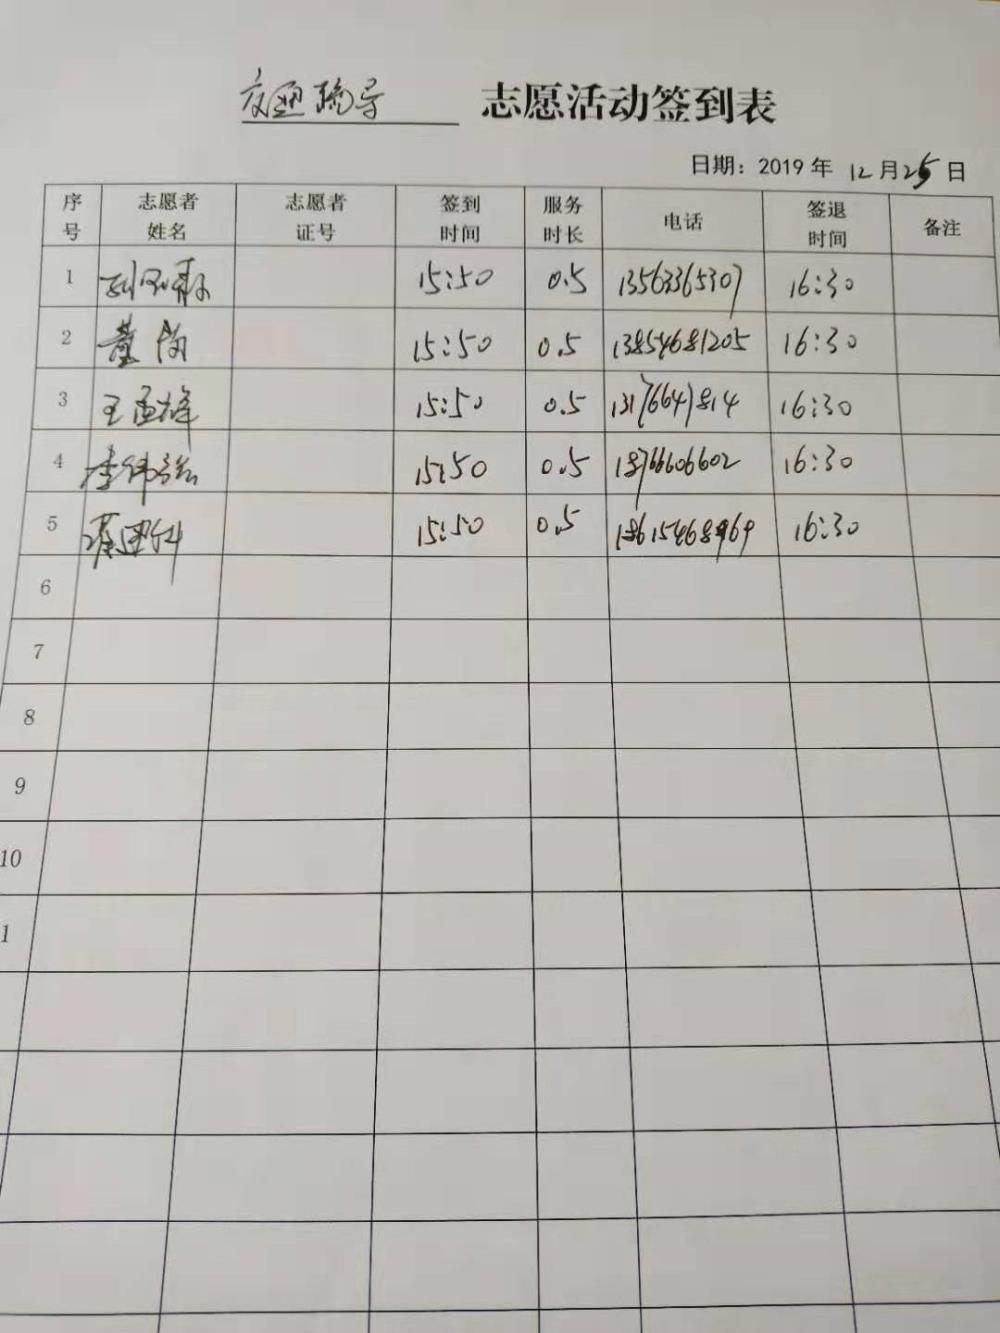 志愿活动签到表
日期：2019年 12月25日
序号 志愿者姓名 志愿者证号 签到时间 服务时长 电话 签退时间 备注
1 15:50 0.5 13563365307 16:30
2 董 15:50 0.5 13854681205 16:30
3 王孟 15:50 0.5 13176647814 16:30
4 李伟 15:50 0.5 18766606602 16:30
5 15:50 0.5 16:30
6
7
8
9
10
1